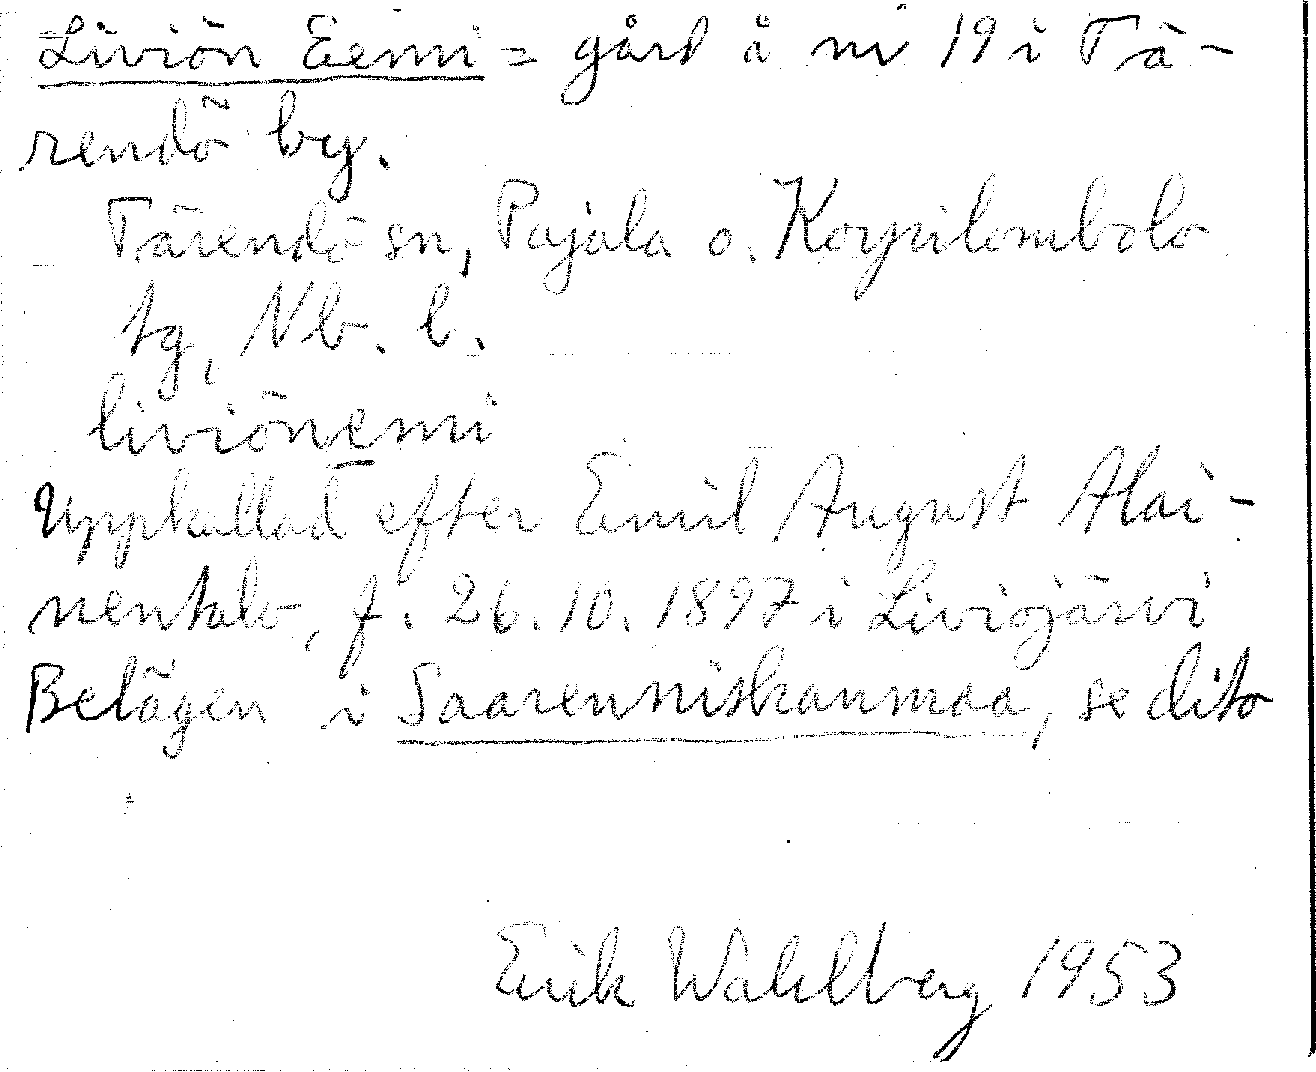 Liviön Eemi = gård å nr 19 i Tä-
rendö by.
Tärendö sn, Pajala o. Korpilombolo
tg, Nb. l.
liviönemi
Uppkallad efter Emil August Alai-
nentalo, f. 26.10.1897 i Liviojärvi
Belägen i Saarenniskanmaa, se dito
Erik Wahlberg 1953